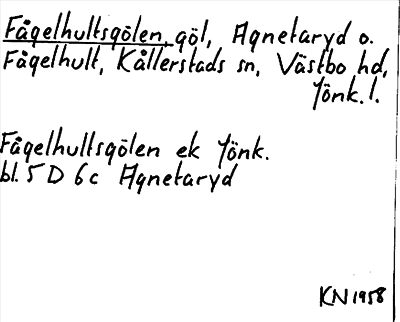 Fågelhultsgölen, göl, Agnetaryd o.
Fågelhult, Kållerstads sn, Västbo hd,
Jönk. l.
Fågelhultsgölen ek Jönk.
bl. 5 D 6 c Agnetaryd
KN 1958